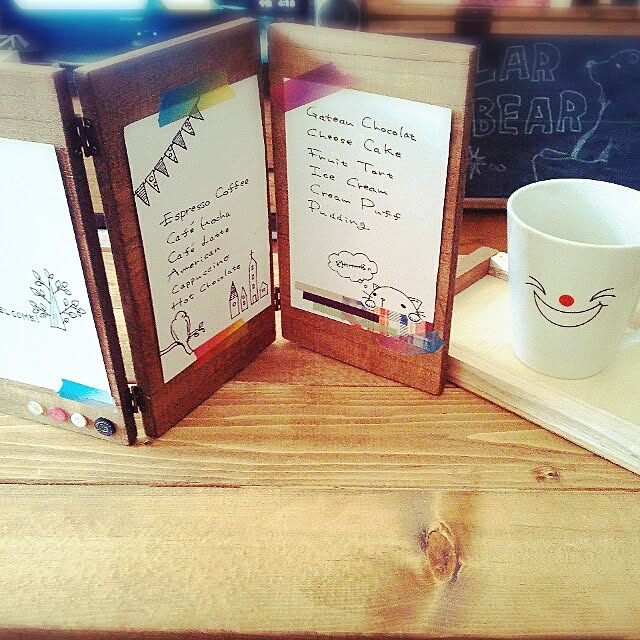 ELCOME!
Espresso Coffee
Café Mocha
Café Latte
American
Cappuccino
Hot Chocolate
Gateau Chocolat
Cheese Cake
Fruit Tart
Ice Cream
Cream Puff
Pudding
LAR
BEAR